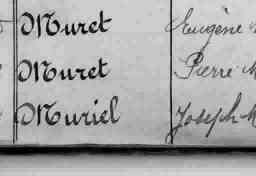 Muret Eugène
Muret Pierre
Muriel Joseph